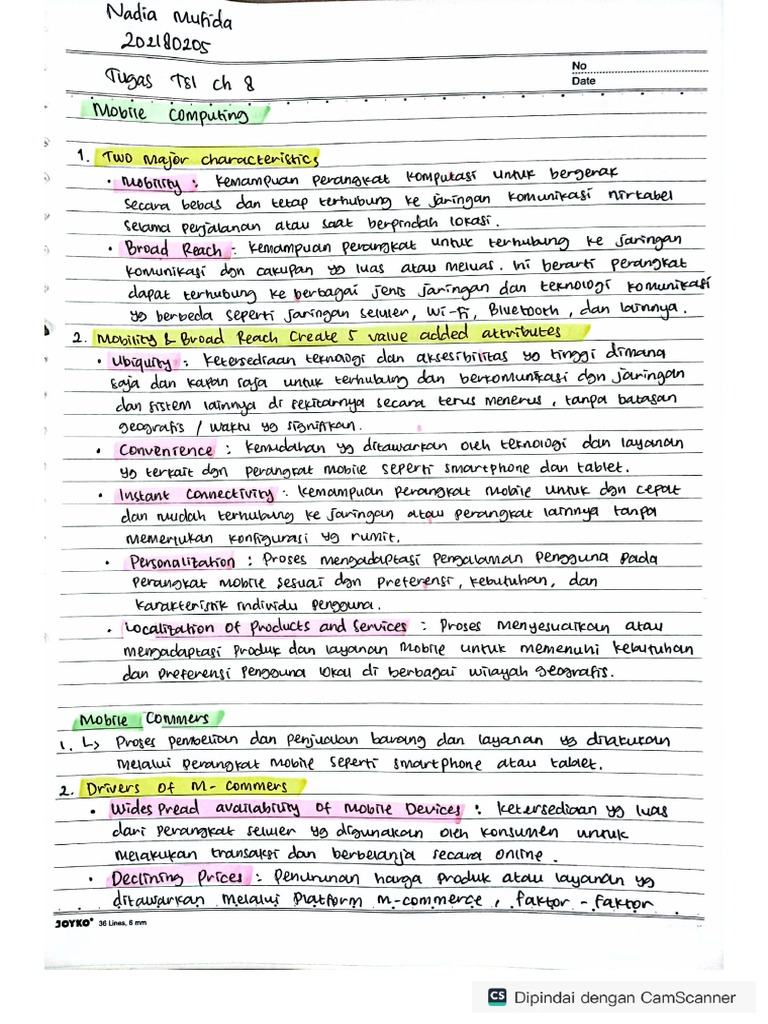 Nadia Mufida
202180205
Tugas TSI ch 8
No
Date
Mobile Computing
1. Two Major characteristics
• Mobility : Kemampuan perangkat komputasi untuk bergerak
secara bebas dan tetap terhubung ke jaringan komunikasi nirkabel
selama perjalanan atau saat berpindah lokasi.
• Broad Reach : Kemampuan perangkat untuk terhubung ke jaringan
komunikasi dgn cakupan yg luas atau meluas. Ini berarti perangkat
dapat terhubung ke berbagai jenis jaringan dan teknologi komunikasi
yg berbeda seperti jaringan seluler, Wi-Fi, Bluetooth, dan lainnya.
2. Mobility & Broad Reach Create 5 value added attributes
• Ubiquity : Ketersediaan teknologi dan aksesibilitas yg tinggi dimana
saja dan kapan saja untuk terhubung dan berkomunikasi dgn jaringan
dan sistem lainnya di sekitarnya secara terus menerus, tanpa batasan
geografis / waktu yg signifikan.
• Convenience : Kemudahan yg ditawarkan oleh teknologi dan layanan
yg terkait dgn perangkat mobile seperti smartphone dan tablet.
• Instant Connectivity : Kemampuan perangkat mobile untuk dgn cepat
dan mudah terhubung ke jaringan atau perangkat lainnya tanpa
memerlukan konfigurasi yg rumit.
• Personalization : Proses mengadaptasi pengalaman pengguna pada
perangkat mobile sesuai dgn preferensi, kebutuhan, dan
karakteristik individu pengguna.
• Localization of Products and Services : Proses menyesuaikan atau
mengadaptasi produk dan layanan mobile untuk memenuhi kebutuhan
dan preferensi pengguna lokal di berbagai wilayah geografis.
Mobile Commers
1. ↳ Proses pembelian dan penjualan barang dan layanan yg dilakukan
melalui perangkat mobile seperti smartphone atau tablet.
2. Drivers of M-Commers
• Wides Pread availability of Mobile Devices : ketersediaan yg luas
dari perangkat seluler yg digunakan oleh konsumen untuk
melakukan transaksi dan berbelanja secara online.
• Declining Prices : Penurunan harga produk atau layanan yg
ditawarkan melalui platform m-commerce, faktor-faktor
JOYKO 36 Lines, 6 mm
CS Dipindai dengan CamScanner